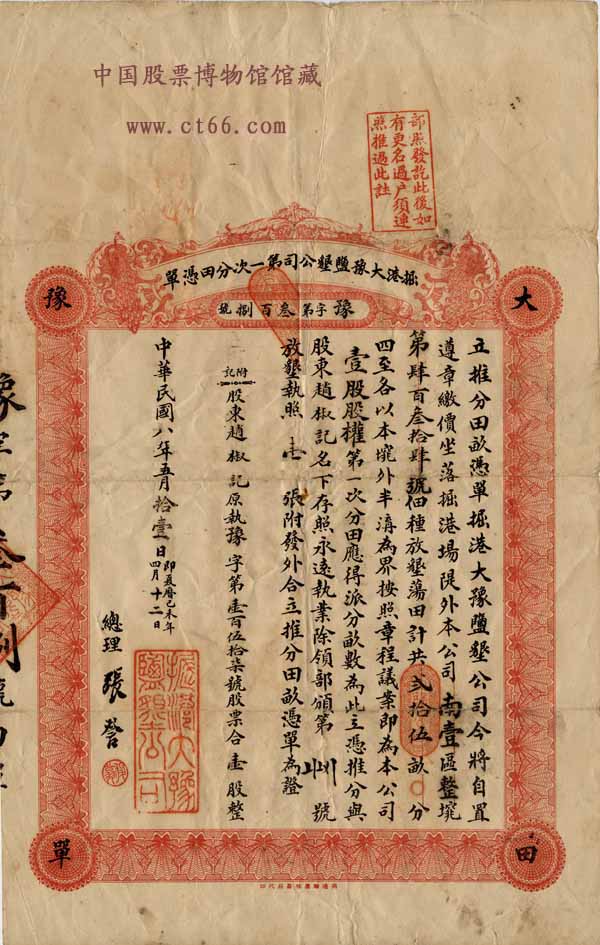 中国股票博物馆馆藏
www.ct66.com
部照發訖此後如
有更名過戶須連
照推過此註
掘港大豫鹽墾公司第一次分田憑單
豫字第叁百捌號
大
豫
田
單
立推分田畝憑單掘港大豫鹽墾公司今將自置
遵章繳價坐落掘港場隄外本公司南壹區整㘯
第肆百叁拾肆號佃種放墾蕩田計共弍拾伍畝〇分
四至各以本㘯外半溝為界按照章程議業即為本公司
壹股股權第一次分田應得派分畝數為此立憑推分與
股東趙椒記名下存照永遠執業除領部頒第 號
放墾執照 張附發外合立推分田畝憑單為證
附記
一股東趙椒記原執豫字第壹百伍拾柒號股票合壹股整
中華民國八年五月拾壹日
即夏曆己未年
四月十二日
總理 張詧
掘港大豫
鹽墾公司
豫字第叁百捌號